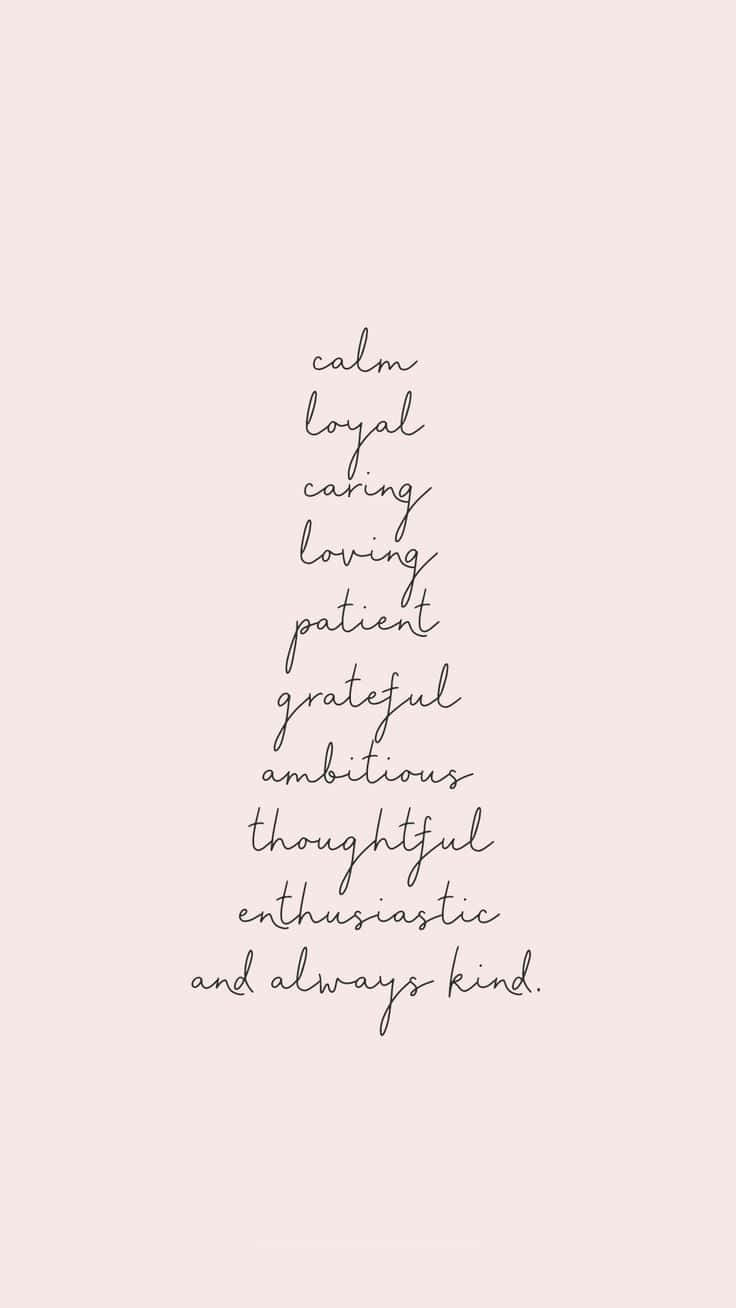 calm
loyal
caring
loving
patient
grateful
ambitious
thoughtful
enthusiastic
and always kind.